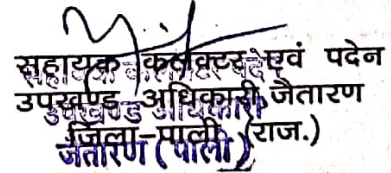 सहायक कलेक्टर एवं पदेन
उपखण्ड अधिकारी जैतारण
जिला-पाली (राज.)
जैतारण (पाली)